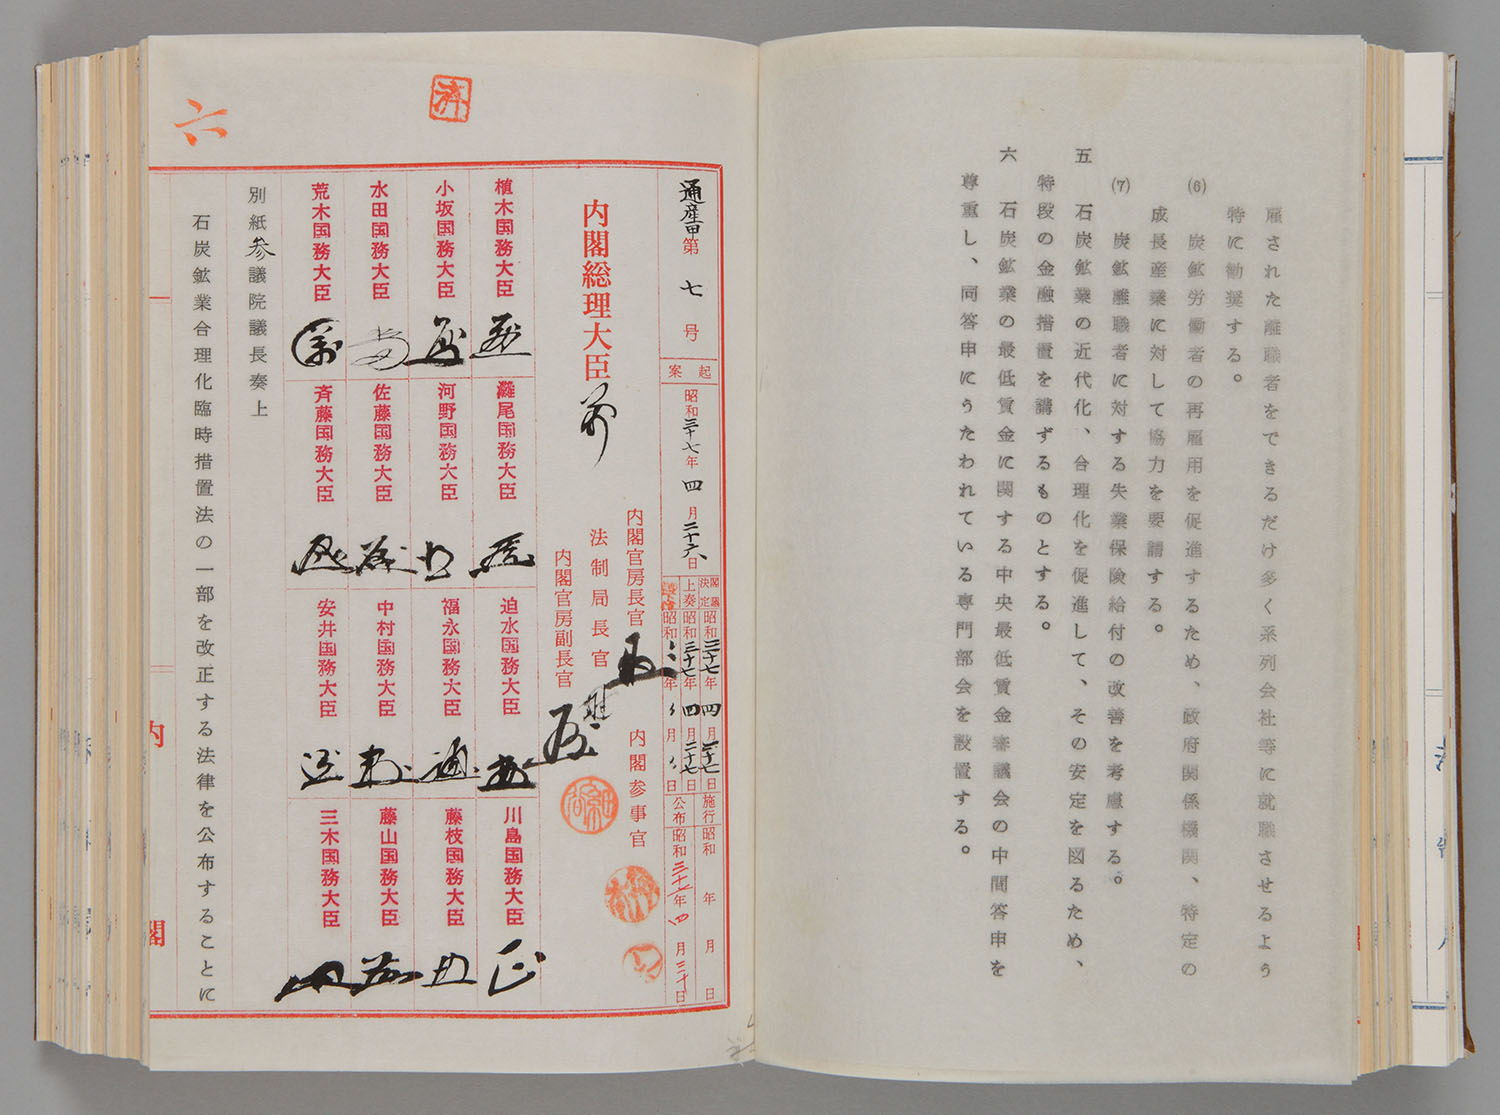 雇された離職者をできるだけ多く系列会社等に就職させるよう
特に勧奨する。
(6) 炭鉱労働者の再雇用を促進するため、政府関係機関、特定の
成長産業に対して協力を要請する。
(7) 炭鉱離職者に対する失業保険給付の改善を考慮する。
五 石炭鉱業の近代化、合理化を促進して、その安定を図るため、
特段の金融措置を講ずるものとする。
六 石炭鉱業の最低賃金に関する中央最低賃金審議会の中間答申を
尊重し、同答申にうたわれている専門部会を設置する。
済
六
通産甲第七号
起案 昭和三十七年四月二十六日
閣議決定 昭和三十七年四月二十七日
上奏 昭和三十七年四月二十七日
施行 昭和 年 月 日
公布 昭和三十七年四月三十日
内閣総理大臣
内閣官房長官
法制局長官
内閣官房副長官
内閣参事官
植木国務大臣
灘尾国務大臣
迫水国務大臣
川島国務大臣
小坂国務大臣
河野国務大臣
福永国務大臣
藤枝国務大臣
水田国務大臣
佐藤国務大臣
中村国務大臣
藤山国務大臣
荒木国務大臣
斉藤国務大臣
安井国務大臣
三木国務大臣
別紙参議院議長奏上
石炭鉱業合理化臨時措置法の一部を改正する法律を公布することに
内閣